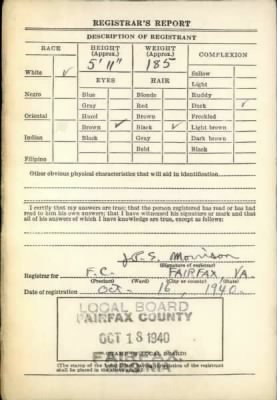 REGISTRAR'S REPORT
DESCRIPTION OF REGISTRANT
RACE HEIGHT (Approx.) WEIGHT (Approx.) COMPLEXION
5' 11" 185
White ✓ Sallow
EYES HAIR Light
Negro Blue Blonde Ruddy
Gray Red Dark ✓
Oriental Hazel Brown Freckled
Brown ✓ Black ✓ Light brown
Indian Black Gray Dark brown
Bald Black
Filipino
Other obvious physical characteristics that will aid in identification
I certify that my answers are true; that the person registered has read or has had
read to him his own answers; that I have witnessed his signature or mark and that
all of his answers of which I have knowledge are true, except as follows:
Morrison
(Signature of registrar)
Registrar for F.C. FAIRFAX VA.
(Precinct) (Ward) (City or county) (State)
Date of registration Oct. 16, 1940.
LOCAL BOARD
FAIRFAX COUNTY
OCT 18 1940
FAIRFAX,
(STAMP OF LOCAL BOARD)
(The stamp of the Local Board
shall be placed in